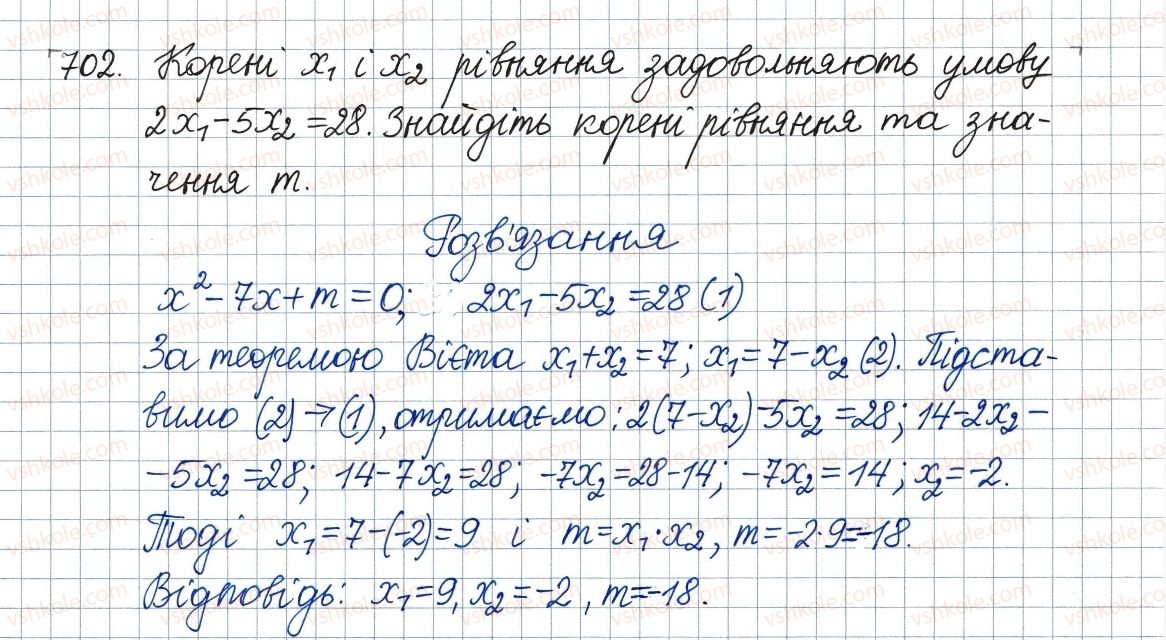 702. Корені x₁ і x₂ рівняння задовольняють умову
2x₁-5x₂=28. Знайдіть корені рівняння та зна-
чення m.
Розв'язання
x²-7x+m=0; 2x₁-5x₂=28 (1)
За теоремою Вієта x₁+x₂=7; x₁=7-x₂ (2). Підста-
вимо (2)→(1), отримаємо: 2(7-x₂)-5x₂=28; 14-2x₂-
-5x₂=28; 14-7x₂=28; -7x₂=28-14; -7x₂=14; x₂=-2.
Тоді x₁=7-(-2)=9 і m=x₁·x₂, m=-2·9=-18.
Відповідь: x₁=9, x₂=-2, m=-18.